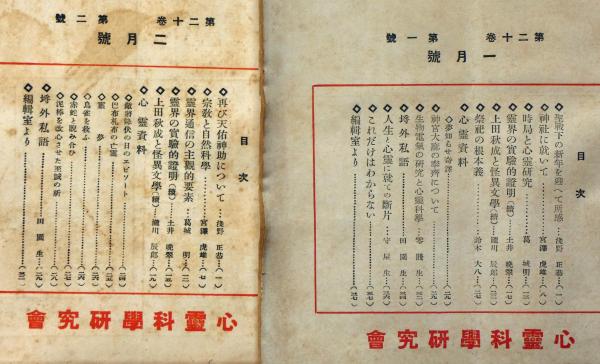 第二十卷 第一號
一月號
目次
◇聖戰下の新年を迎へて所感…淺野正恭…(一)
◇神社に就いて…宮澤虎雄…(八)
◇時局と心靈研究…葛城明…(一三)
◇靈界の實驗的證明(續)…土井晩翠…
◇上田秋成と怪異文學(續)…瀧川辰郎…
◇祭祀の根本義…鈴木大八…
◇心靈資料
◇夢知らせ奇譚
◇神宮大麻の奉齋について
◇生物電氣の研究と心靈科學…零餞生…
◇坿外私語…田園生…
◇人生と心靈に就ての斷片…守屋生…
◇これだけはわからない
◇編輯室より
心靈科學研究會
第二十卷 第二號
二月號
目次
◇再び天佑神助について…淺野正恭…(一)
◇宗教と自然科學…宮澤虎雄…(七)
◇靈界通信の主觀的要素…葛城明…
◇靈界の實驗的證明(續)…土井晩翠…
◇上田秋成と怪異文學(續)…瀧川辰郎…
心靈資料
◇敵潛降伏の日のエピソード
◇巴布札布の亡靈
◇靈夢
◇烏雀を救ふ
◇赤蛇と睨み合ひ
◇泥棒を改心させた至誠の祈
◇坿外私語…田園生…
◇編輯室より
心靈科學研究會